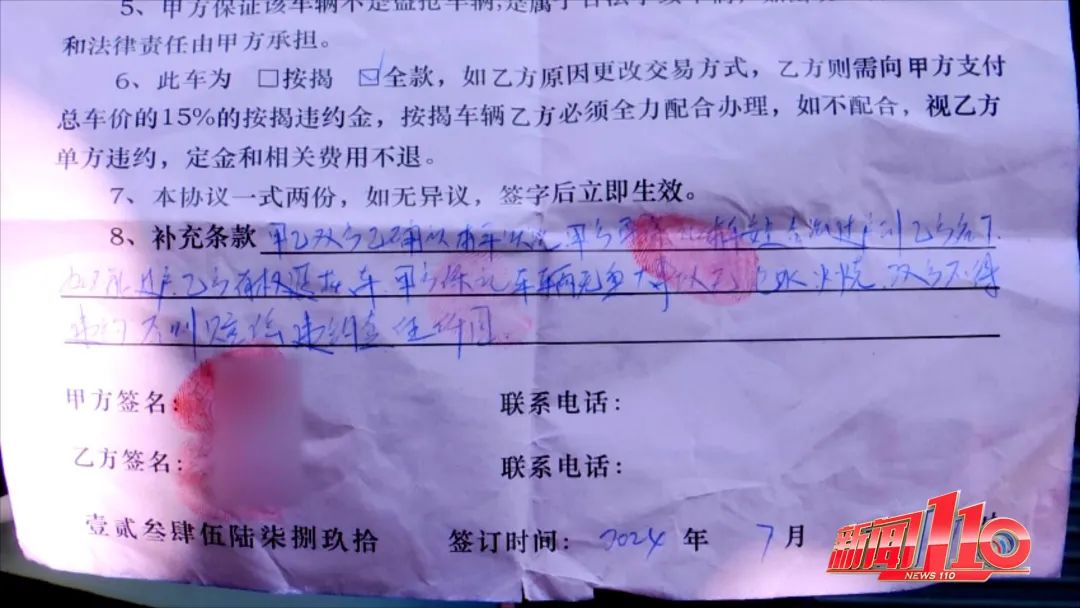 5、甲方保证该车辆不是盗抢车辆,是属于合法手续车辆,
和法律责任由甲方承担。
6、此车为 □按揭 ☑全款,如乙方原因更改交易方式,乙方则需向甲方支付
总车价的15%的按揭违约金,按揭车辆乙方必须全力配合办理,如不配合,视乙方
单方违约,定金和相关费用不退。
7、本协议一式两份,如无异议,签字后立即生效。
8、补充条款 甲乙双方已确认本车状况 甲方 过户到乙方名下
过户乙方有权退车 甲方保证车辆无重大事故 泡水 火烧 双方不得
违约 否则赔偿违约金
甲方签名: 联系电话:
乙方签名: 联系电话:
壹贰叁肆伍陆柒捌玖拾 签订时间: 2024 年 7 月
新闻110
NEWS 110